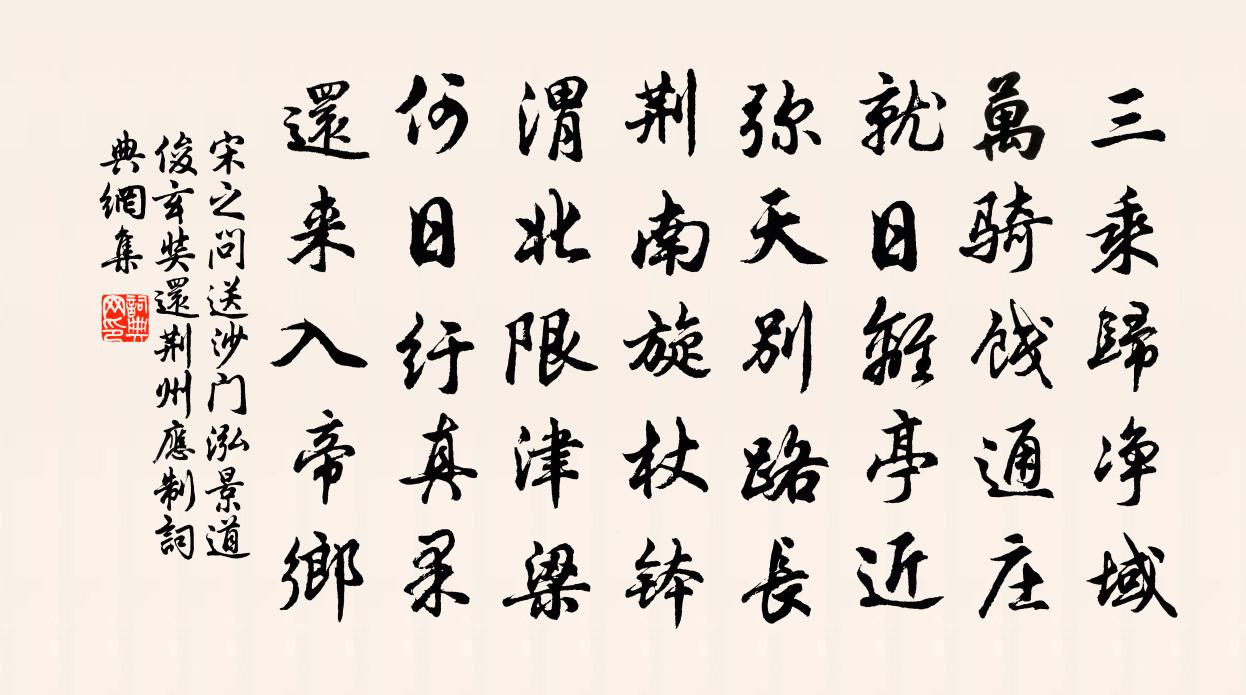 三乘歸净域
萬騎餞通庄
就日離亭近
弥天别路長
荆南旋杖鉢
渭北限津梁
何日紆真果
還来入帝鄉
宋之問送沙门泓景道
俊玄奘還荆州應制詞
典網集
詞典
网印